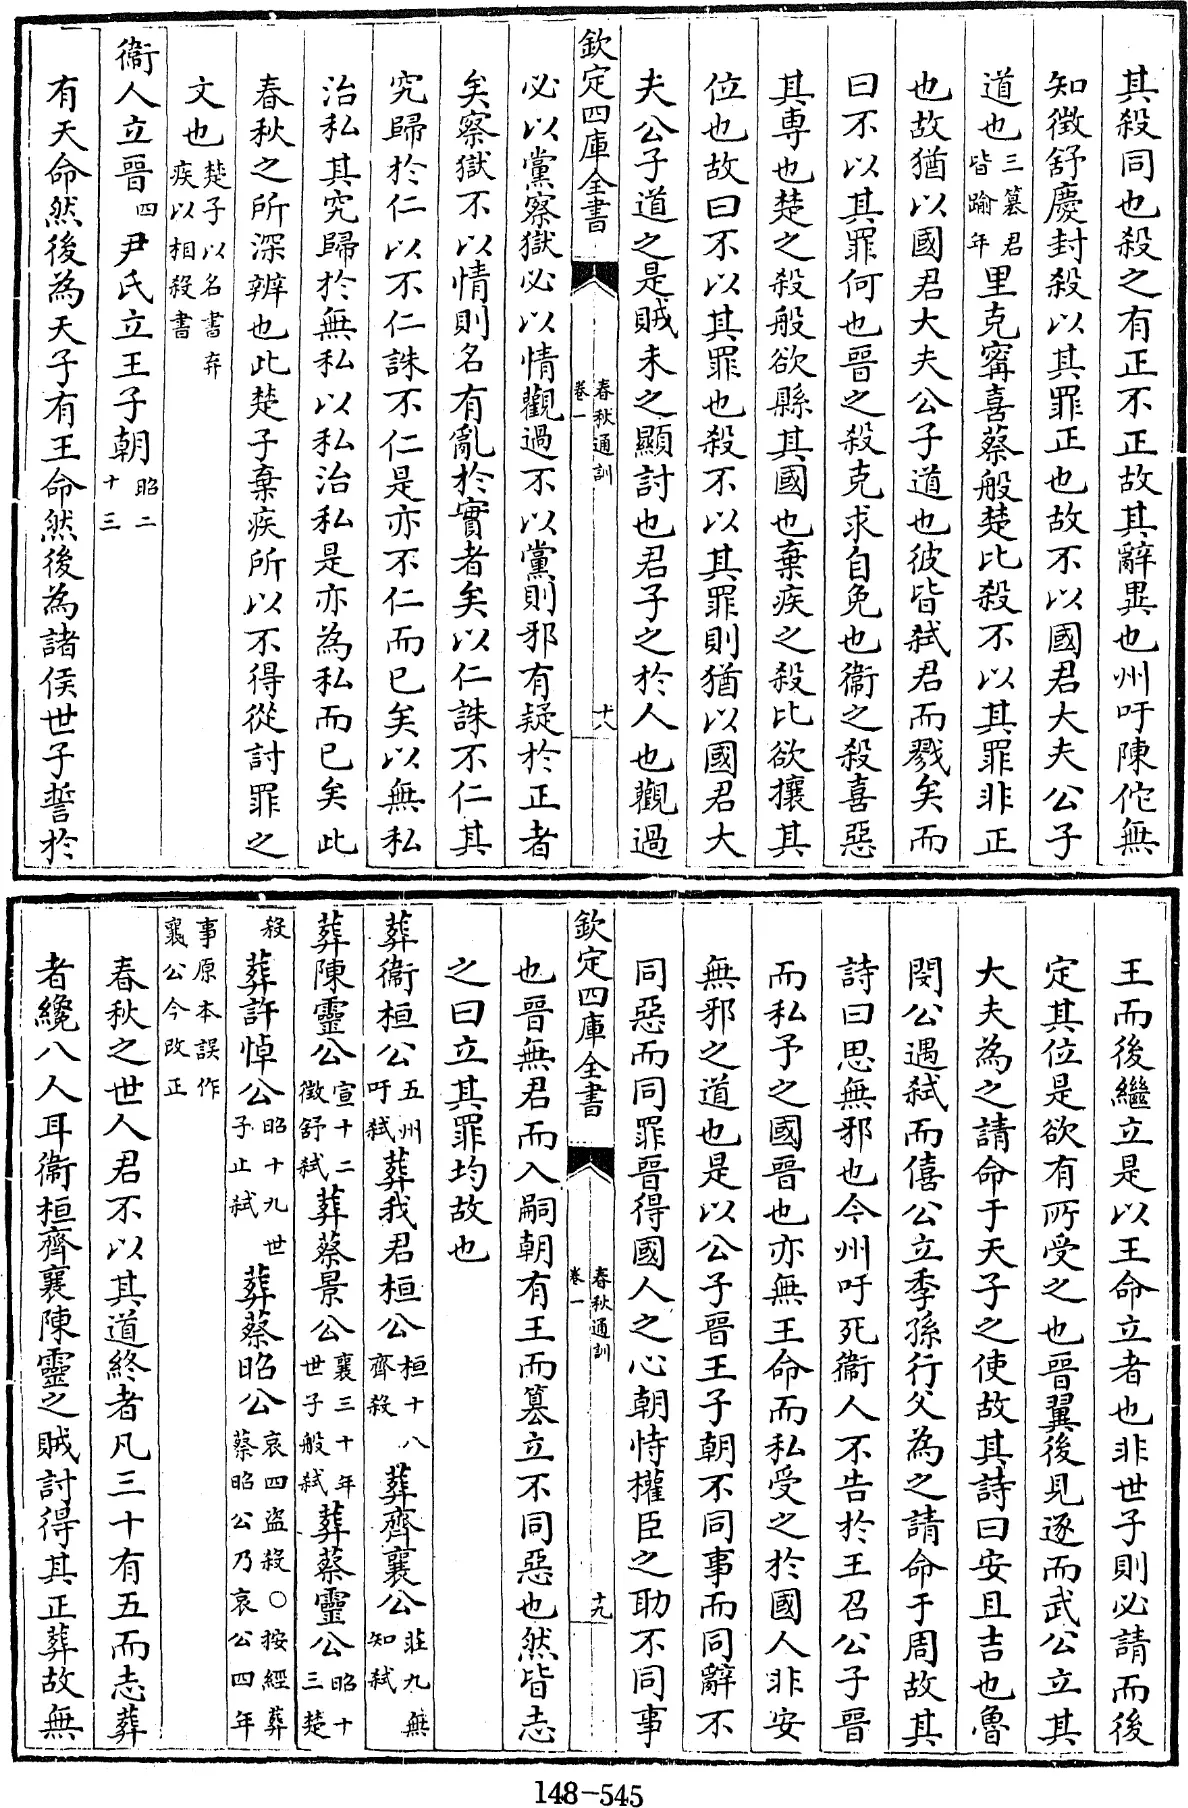 其殺同也殺之有正不正故其辭異也州吁陳佗無
知徵舒慶封殺以其罪正也故不以國君大夫公子
道也三篡君皆踰年里克甯喜蔡般楚比殺不以其罪非正
也故猶以國君大夫公子道也彼皆弑君而戮矣而
曰不以其罪何也晉之殺克求自免也衞之殺喜惡
其專也楚之殺般欲縣其國也棄疾之殺比欲攘其
位也故曰不以其罪也殺不以其罪則猶以國君大
夫公子道之是賊未之顯討也君子之於人也觀過
欽定四庫全書
春秋通訓
卷一
十八
必以黨察獄必以情觀過不以黨則邪有疑於正者
矣察獄不以情則名有亂於實者矣以仁誅不仁其
究歸於仁以不仁誅不仁是亦不仁而已矣以無私
治私其究歸於無私以私治私是亦為私而已矣此
春秋之所深辨也此楚子棄疾所以不得從討罪之
文也楚子以名書弃疾以相殺書
衞人立晉四尹氏立王子朝昭二十三
有天命然後為天子有王命然後為諸侯世子誓於
王而後繼立是以王命立者也非世子則必請而後
定其位是欲有所受之也晉翼後見逐而武公立其
大夫為之請命于天子之使故其詩曰安且吉也魯
閔公遇弑而僖公立季孫行父為之請命于周故其
詩曰思無邪也今州吁死衞人不告於王召公子晉
而私予之國晉也亦無王命而私受之於國人非安
無邪之道也是以公子晉王子朝不同事而同辭不
同惡而同罪晉得國人之心朝恃權臣之助不同事
欽定四庫全書
春秋通訓
卷一
十九
也晉無君而入嗣朝有王而篡立不同惡也然皆志
之曰立其罪均故也
葬衞桓公五州吁弑葬我君桓公桓十八齊殺葬齊襄公莊九無知弑
葬陳靈公宣十二徵舒弑葬蔡景公襄三十年世子般弑葬蔡靈公昭十三楚
殺葬許悼公昭十九世子止弑葬蔡昭公哀四盜殺○按經葬蔡昭公乃哀公四年
事原本誤作襄公今改正
春秋之世人君不以其道終者凡三十有五而志葬
者纔八人耳衞桓齊襄陳靈之賊討得其正葬故無
148-545